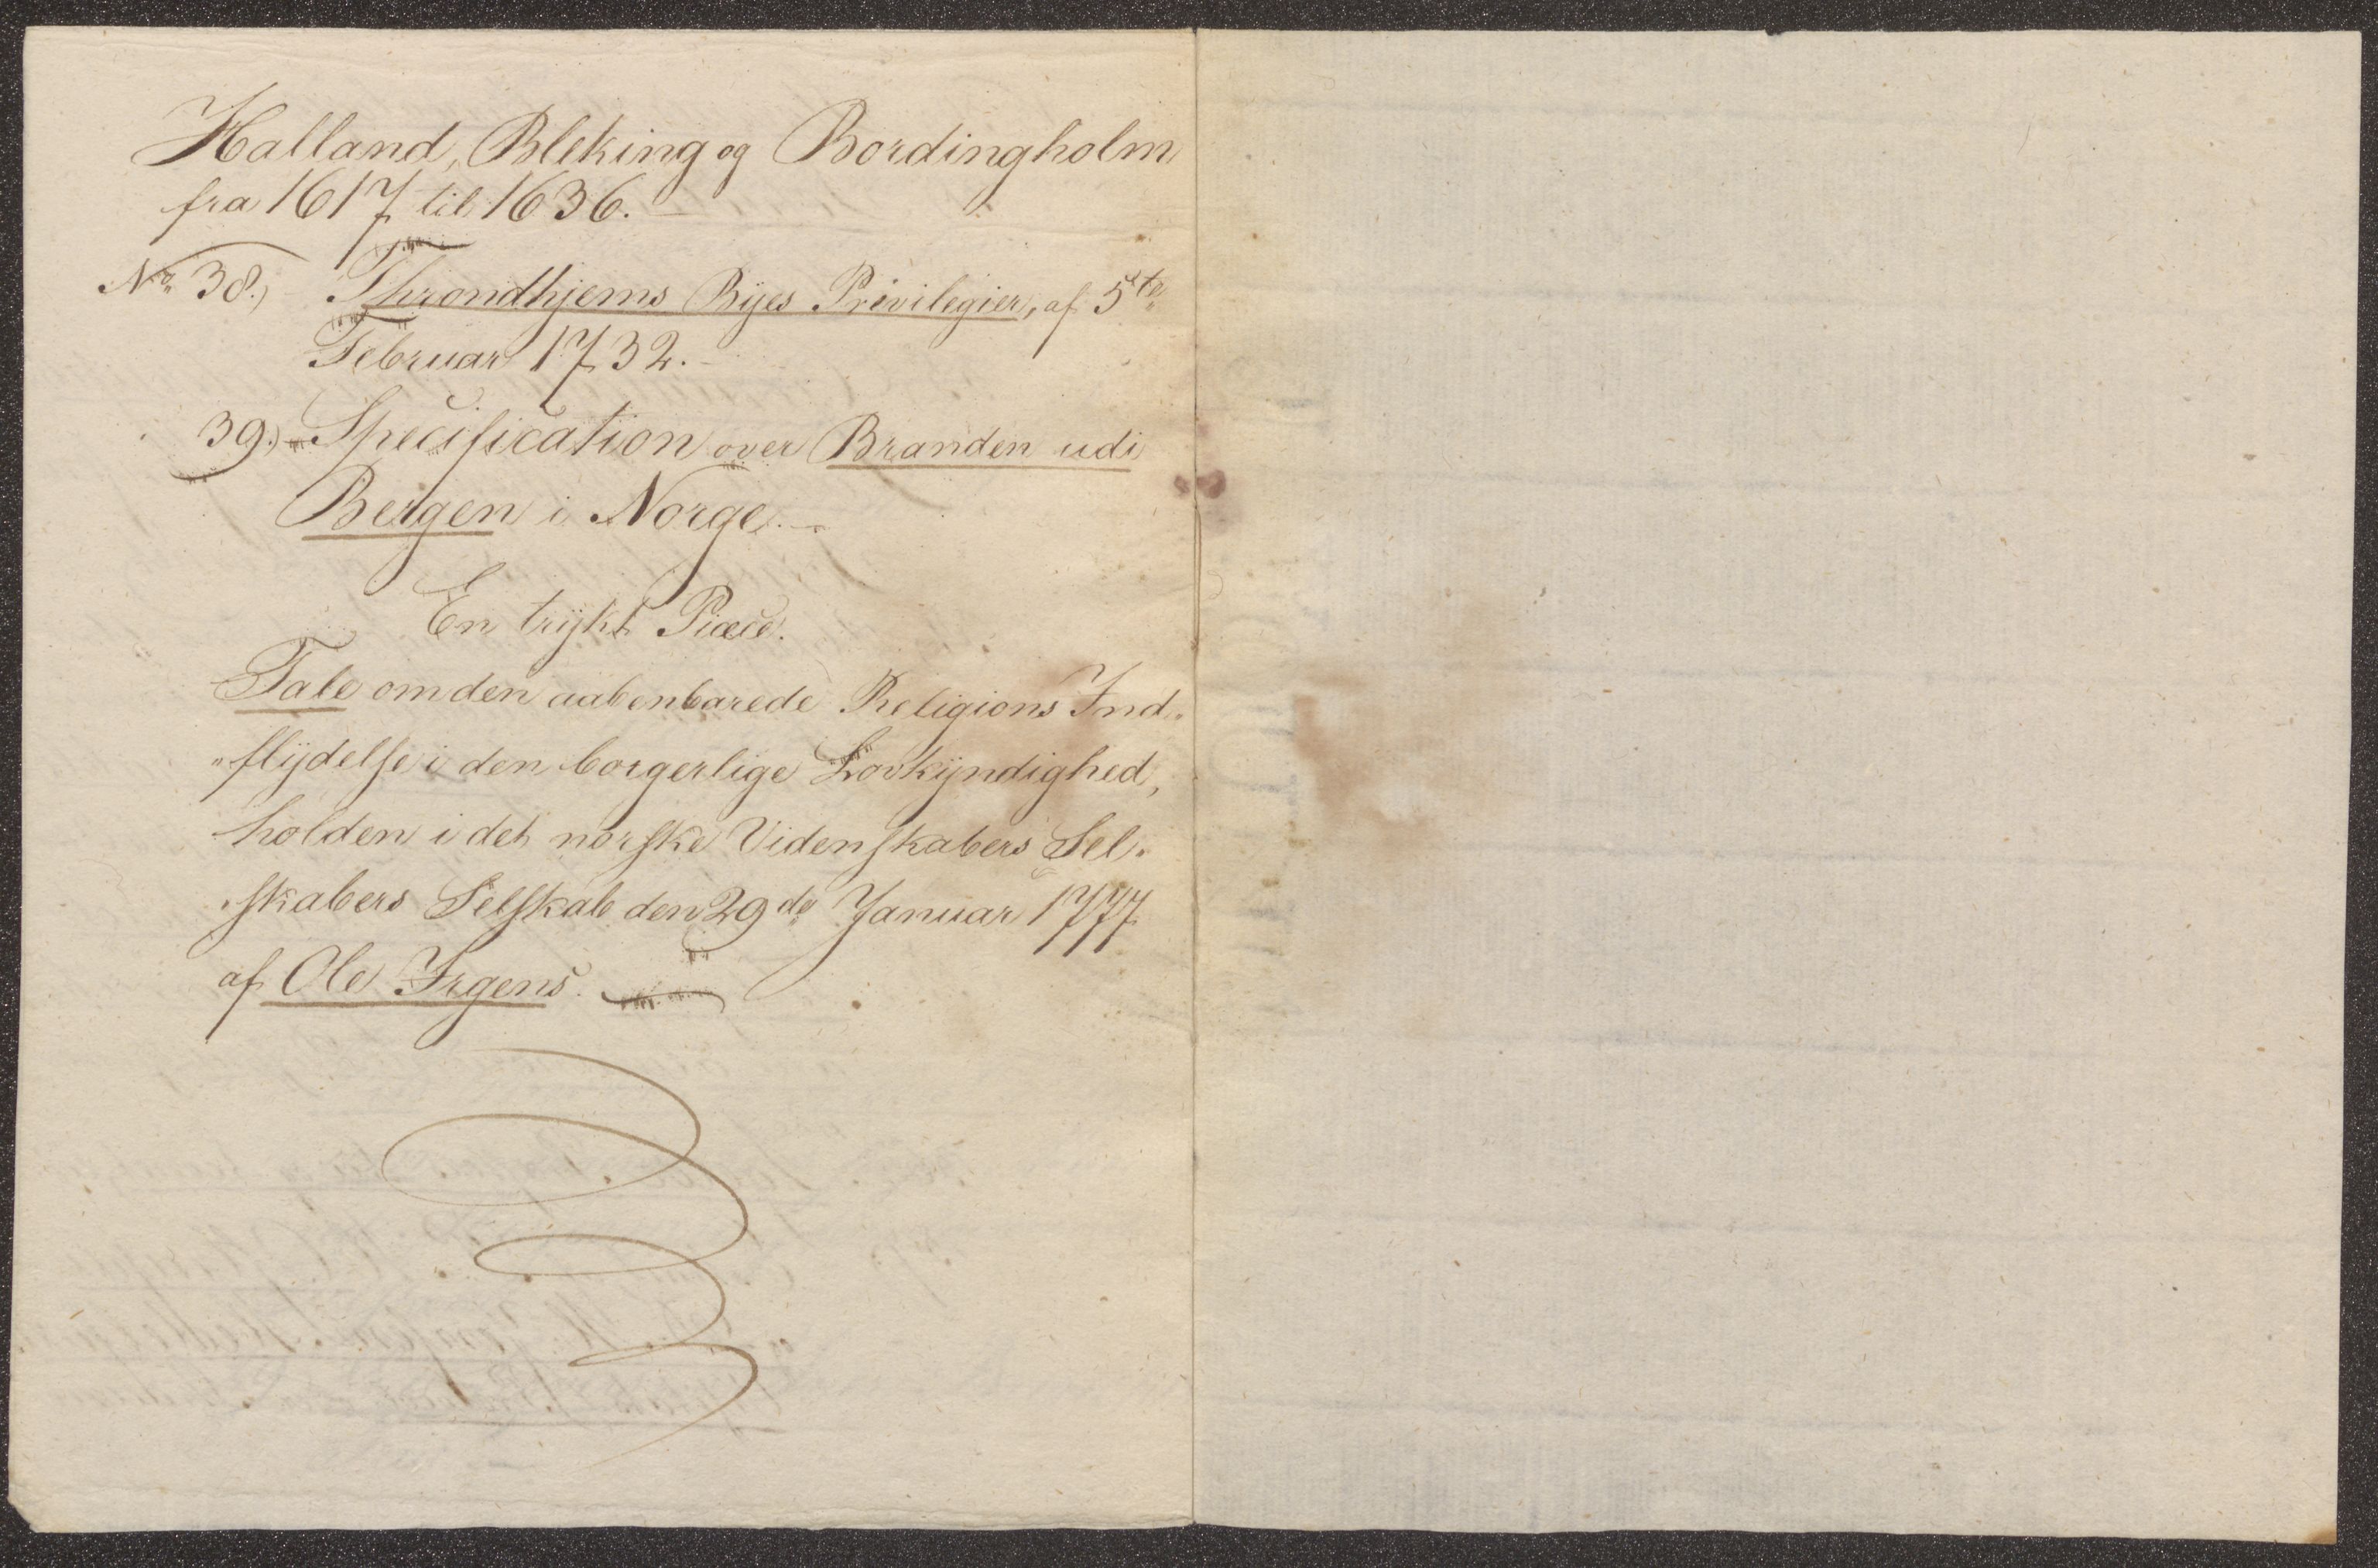 Halland, Bleking og Bordingholm
fra 1617 til 1636.
No 38.) Throndhjems Byes Privilegier, af 5te
Februar 1732.
39.) Specification over Branden udi
Bergen i Norge.
En trykt Piæce.
Tale om den aabenbarede Religions Ind-
flydelse i den borgerlige Lovkyndighed,
holden i det norske Videnskabers Sel-
skabers Selskab den 29de Januar 1777
af Ole Irgens.